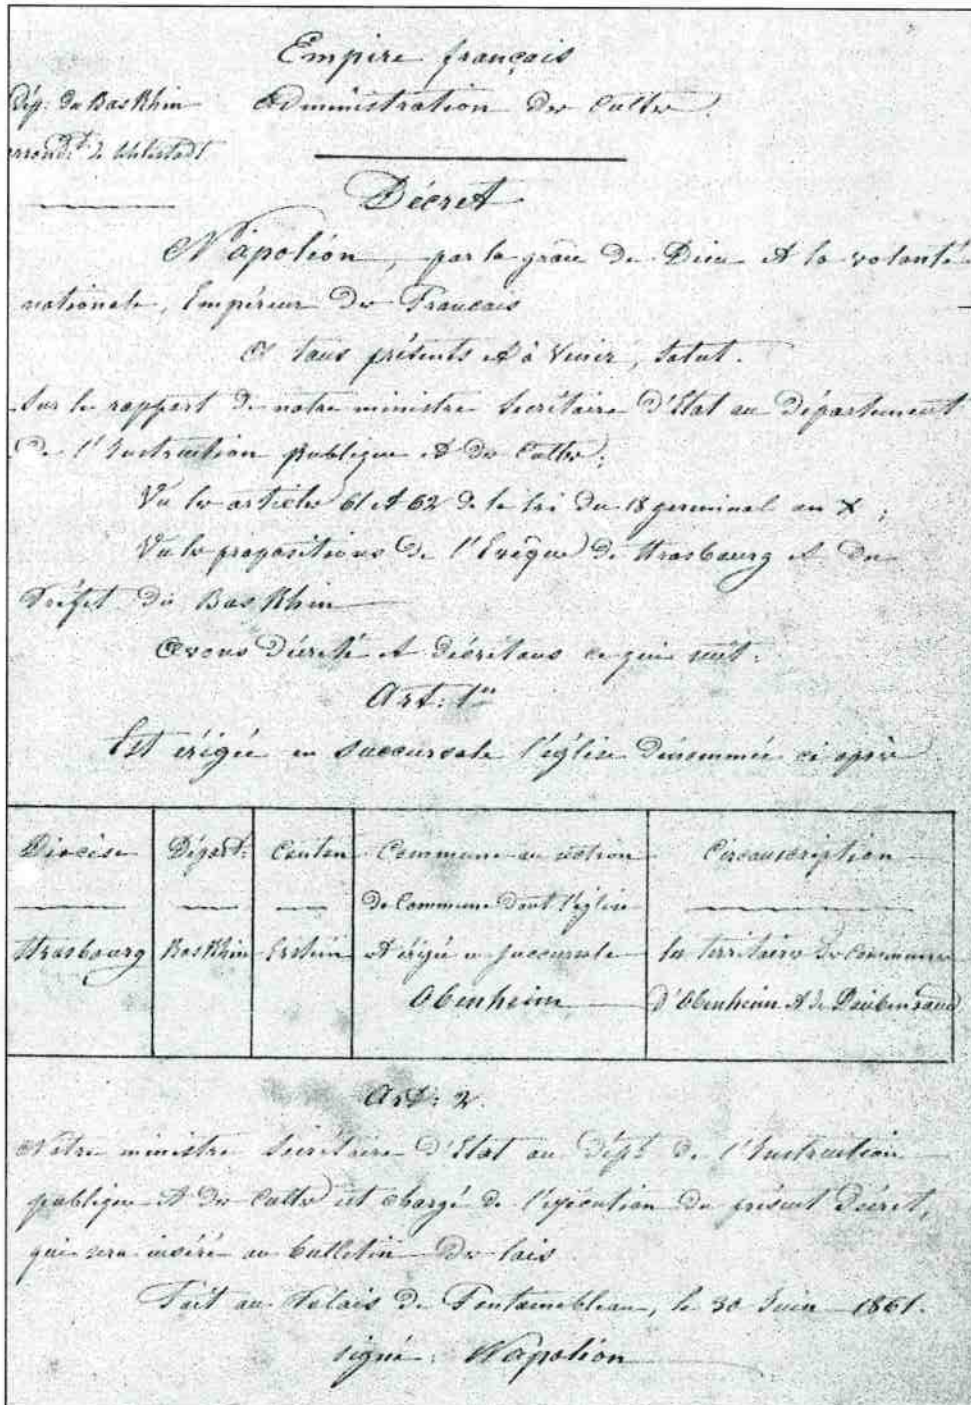 Empire français
Dép. du Bas Rhin Administration des Cultes.
arrondt. de Schlestadt
Décret
Napoléon, par la grâce de Dieu et la volonté
nationale, Empéreur des Francais
A tous présents et à venir, salut.
Sur le rapport de notre ministre Secrétaire d'Etat au département
de l'Instruction Publique et des Cultes;
Vu les articles 61 et 62 de la loi du 18 germinal an X;
Vu les propositions de l'Evêque de Strasbourg et du
Préfet du Bas Rhin
Avons décrété et décrétons ce qui suit:
Art: 1er
Est érigée en succursale l'église dénommée ci après
Diocèse Départ: Canton Commune ou section Circonscription
de Commune dont l'église
Strasbourg Bas Rhin Erstein est érigée en succursale les territoires des communes
Obenheim d'Obenheim et de Daubensand
Art: 2.
Notre ministre Secrétaire d'Etat au Dépt. de l'Instruction
publique et des Cultes est chargé de l'exécution du présent Décret,
qui sera inséré au bulletin des lois.
Fait au Palais de Fontainebleau, le 30 Juin 1861.
signé: Napoléon